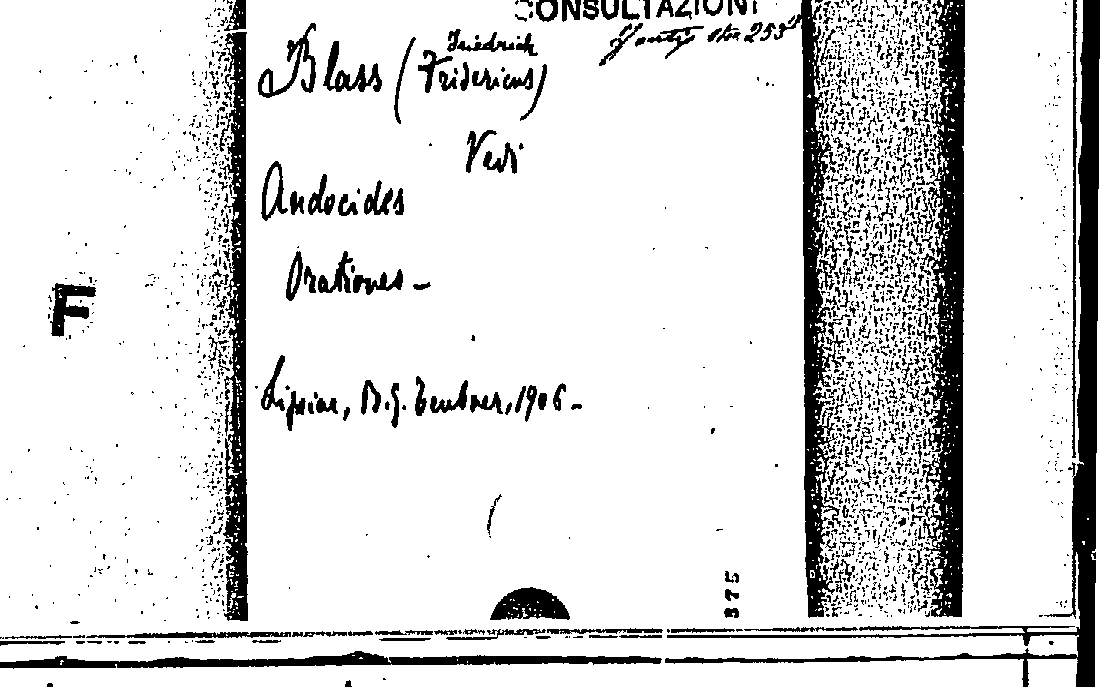 CONSULTAZIONI
253
Blass (Friedrich
Fridericus)
Vedi
Andocides
Orationes -
Lipsiae, B. G. Teubner, 1906 -
F
375